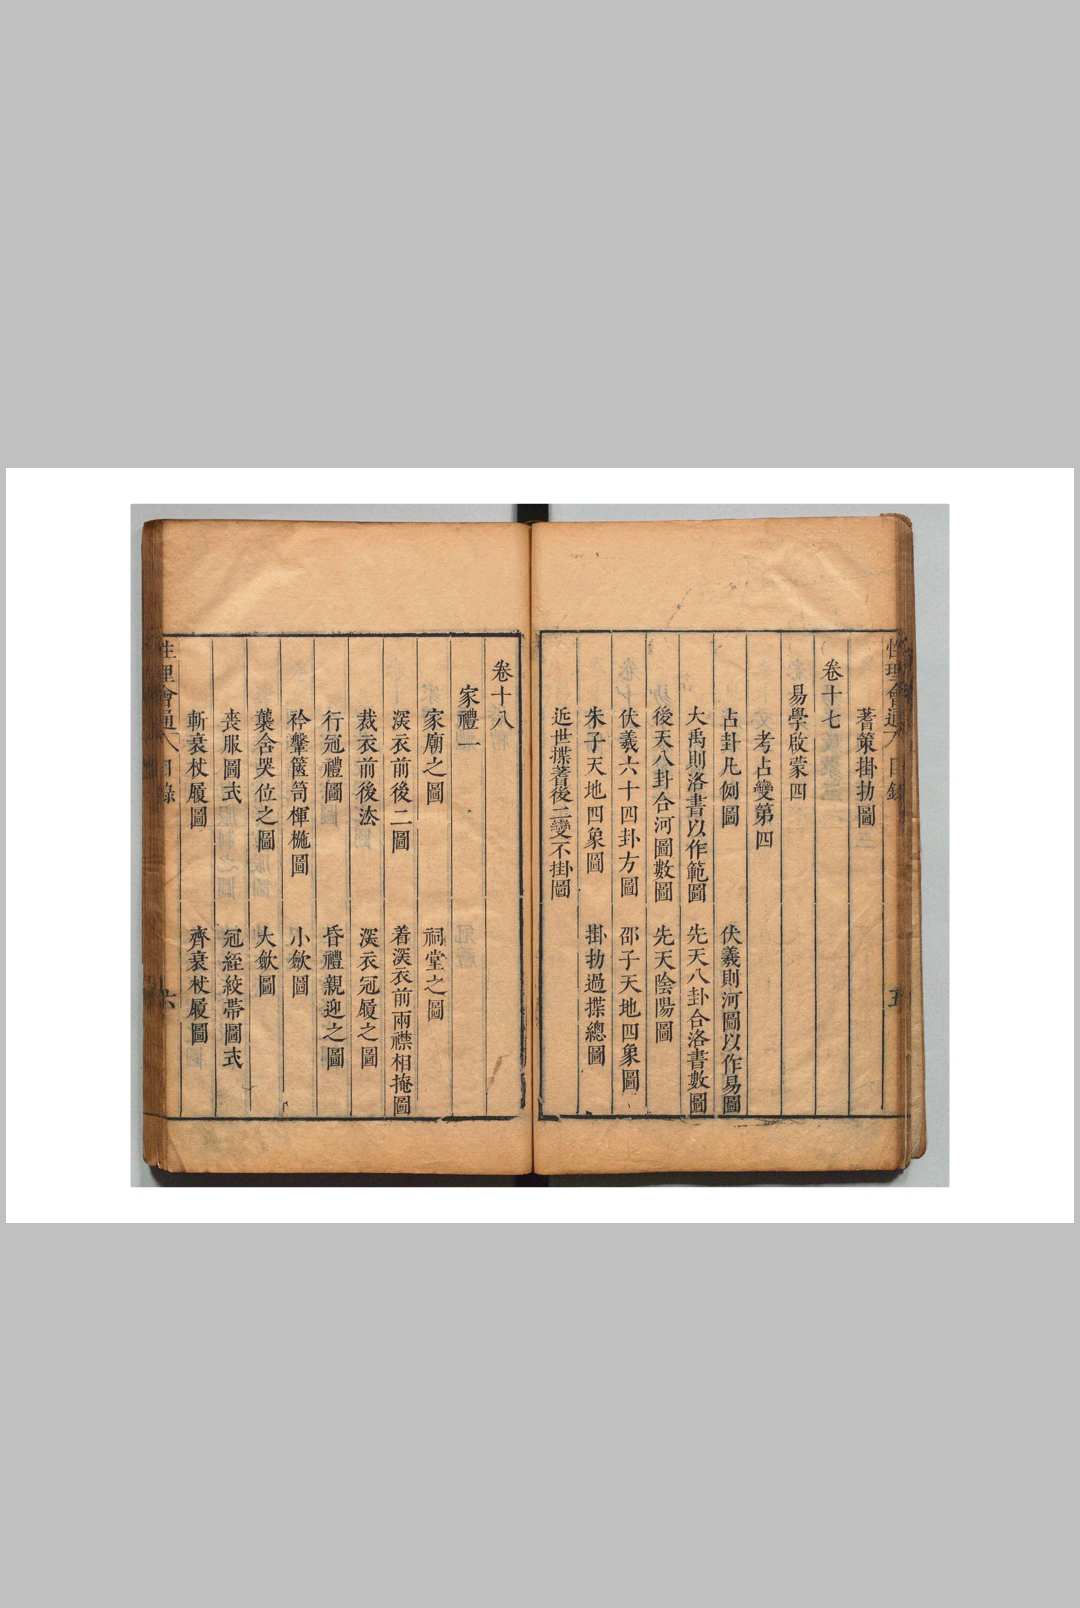 性理會通 目錄 五
蓍策掛扐圖
卷十七
易學啟蒙四
考占變第四
占卦凡例圖 伏羲則河圖以作易圖
大禹則洛書以作範圖 先天八卦合洛書數圖
後天八卦合河圖數圖 先天陰陽圖
伏羲六十四卦方圖 邵子天地四象圖
朱子天地四象圖 掛扐過揲總圖
近世揲蓍後二變不掛圖
卷十八
家禮一
家廟之圖 祠堂之圖
深衣前後二圖 着深衣前兩襟相掩圖
裁衣前後法 深衣冠履之圖
行冠禮圖 昏禮親迎之圖
衿鞶篋笥楎椸圖 小歛圖
襲含哭位之圖 大歛圖
喪服圖式 冠絰絞帶圖式
斬衰杖履圖 齊衰杖履圖
性理會通 目錄 六